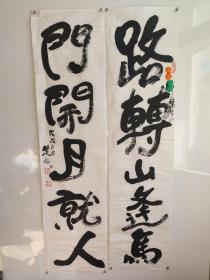 路轉山逢馬
門閑月就人